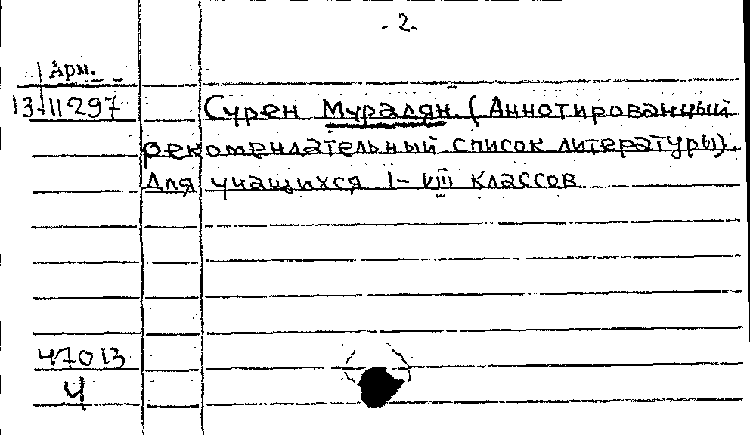 - 2.
Арм.
13-11297
Сурен Муралян. (Аннотированный
рекомендательный список литературы).
Для учащихся I - VIII классов
47013
Ч